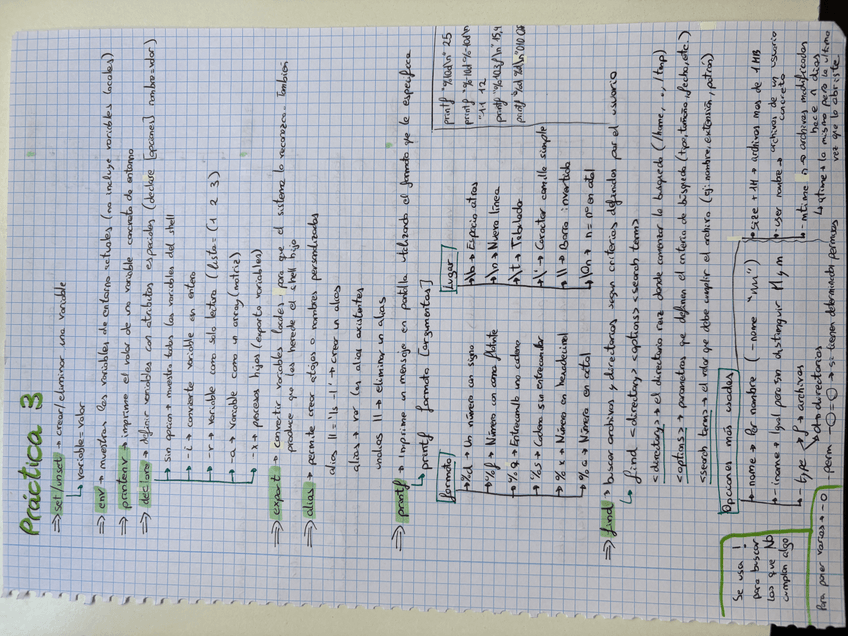 Práctica 3
⇒ set/unset → crear/eliminar una variable
↳ variable=valor
⇒ env → muestras las variables de entorno actuales (no incluye variables locales)
⇒ printenv → imprime el valor de una variable concreta de entorno
⇒ declare → Definir variables con atributos especiales (declare [opciones] nombre=valor)
→ sin opción → muestra todas las variables del shell
→ -i → convierte variable en entero
→ -r → Variable como solo lectura (lista=(1 2 3)
→ -a → Variable como un array (matriz)
→ -x → procesos hijos (exporta variables)
⇒ export → convertir variables locales para que el sistema la reconozca. También
produce que las herede el shell hijo
⇒ alias → permite crear atajos o nombres personalizados
alias ll = 'ls -l' → crear un alias
alias → ver los alias existentes
unalias ll → eliminar un alias
⇒ printf → Imprime un mensaje en pantalla utilizando el formato que le especifica
↳ printf formato [argumentos]
formato
→ %d → Un número con signo
→ %f → Número en coma flotante
→ %q → Entrecomilla una cadena
→ %s → Cadena sin entrecomillar
→ %x → Número en hexadecimal
→ %o → Número en octal
Lugar
→ \b → Espacio atrás
→ \n → Nueva línea
→ \t → Tabulador
→ \' → Caracter comilla simple
→ \\ → Barra invertida
→ \0n → n = nº en octal
printf "%10d\n" 25
printf "%-10d%-10d\n"
"11 12
printf "%10.3f\n" 15,4
printf "%d %d\n" 010
⇒ find → buscar archivos y directorios según criterios definidos por el usuario
↳ find <directory> <options> <search term>
<directory> → el directorio raiz donde comenzar la busqueda (/home, ., /tmp)
<options> → parametros que definen el criterio de búsqueda (tipo, tamaño, fecha, etc.)
<search term> → el valor que debe cumplir el archivo (ej: nombre, extensión, patrón)
Opciones más usadas
→ -name → Por nombre (-name "
→ -iname → Igual pero sin distinguir M y m
→ -type f → archivos
d → directorios
→ -size +1M → archivos mas de 1MB
→ -user nombre → archivos de un usuario
concreto
→ -mtime n → archivos modificados
hace n días
↳ atime → lo mismo pero la ultima
vez que lo abriste
→ -perm → si tienen determinado permisos
Se usa !
para buscar
los que NO
cumplan algo
Para poner varias → -o